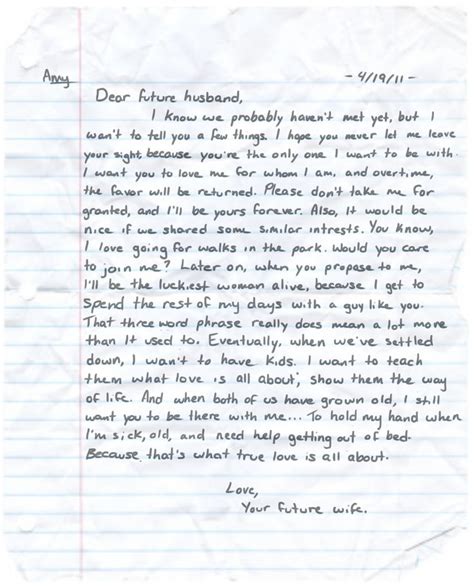 Amy - 4/19/11 -
Dear future husband,
I know we probably haven't met yet, but I
wan't to tell you a few things. I hope you never let me leave
your sight, because you're the only one I want to be with.
I want you to love me for whom I am, and overtime,
the favor will be returned. Please don't take me for
granted, and I'll be yours forever. Also, It would be
nice if we shared some similar intrests. You know,
I love going for walks in the park. Would you care
to join me? Later on, when you propose to me,
I'll be the luckiest woman alive, because I get to
spend the rest of my days with a guy like you.
That three word phrase really does mean a lot more
than it used to. Eventually, when we've settled
down, I wan't to have kids. I want to teach
them what love is all about; show them the way
of life. And when both of us have grown old, I still
want you to be there with me... To hold my hand when
I'm sick, old, and need help getting out of bed.
Because that's what true love is all about.
Love,
Your future wife.